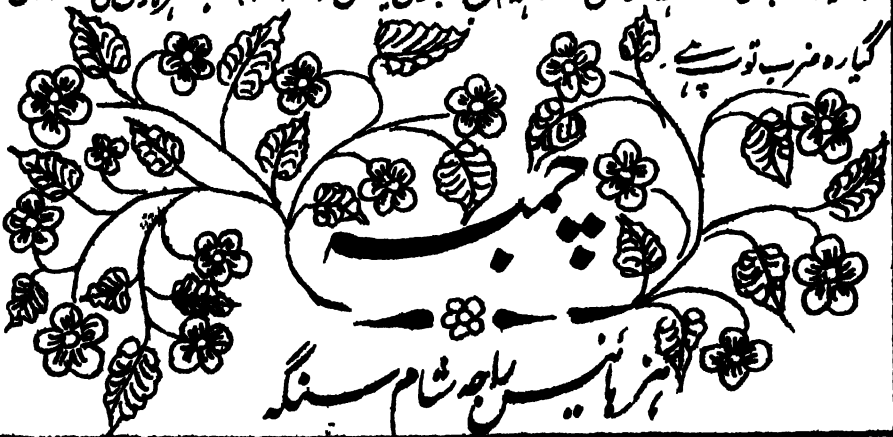 گیارہ ضرب توپ ہے
چمب
ہز ہائینس راجہ شام سنگھ